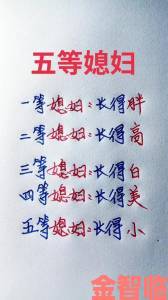 五等媳妇
一等媳妇：长得胖
二等媳妇：长得高
三等媳妇：长得白
四等媳妇：长得美
五等媳妇：长得小
金智收